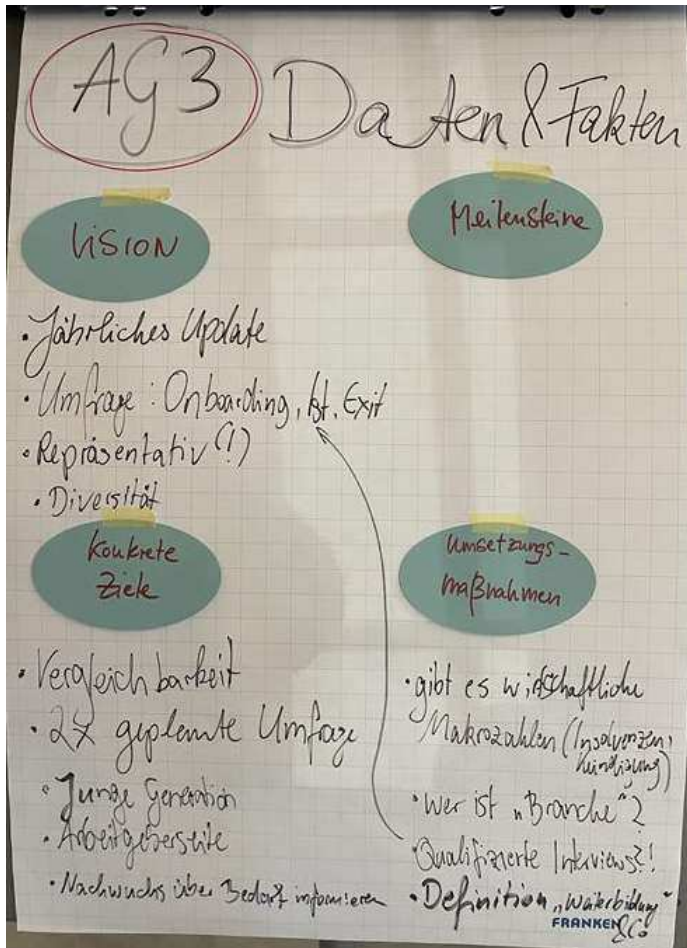 AG3 Daten & Fakten
Vision
• Jährliches Update
• Umfrage: Onboarding, Ist, Exit
• Repräsentativ(!)
• Diversität
Meilensteine
Konkrete
Ziele
• Vergleichbarkeit
• 2x geplante Umfrage
• Junge Generation
• Arbeitgeberseite
• Nachwuchs über Bedarf informieren
Umsetzungs-
maßnahmen
• gibt es wirtschaftliche
Makrozahlen (Insolvenzen,
Kündigung)
• Wer ist „Branche"?
Qualifizierte Interviews?!
• Definition „Weiterbildung"
& Co
FRANKEN